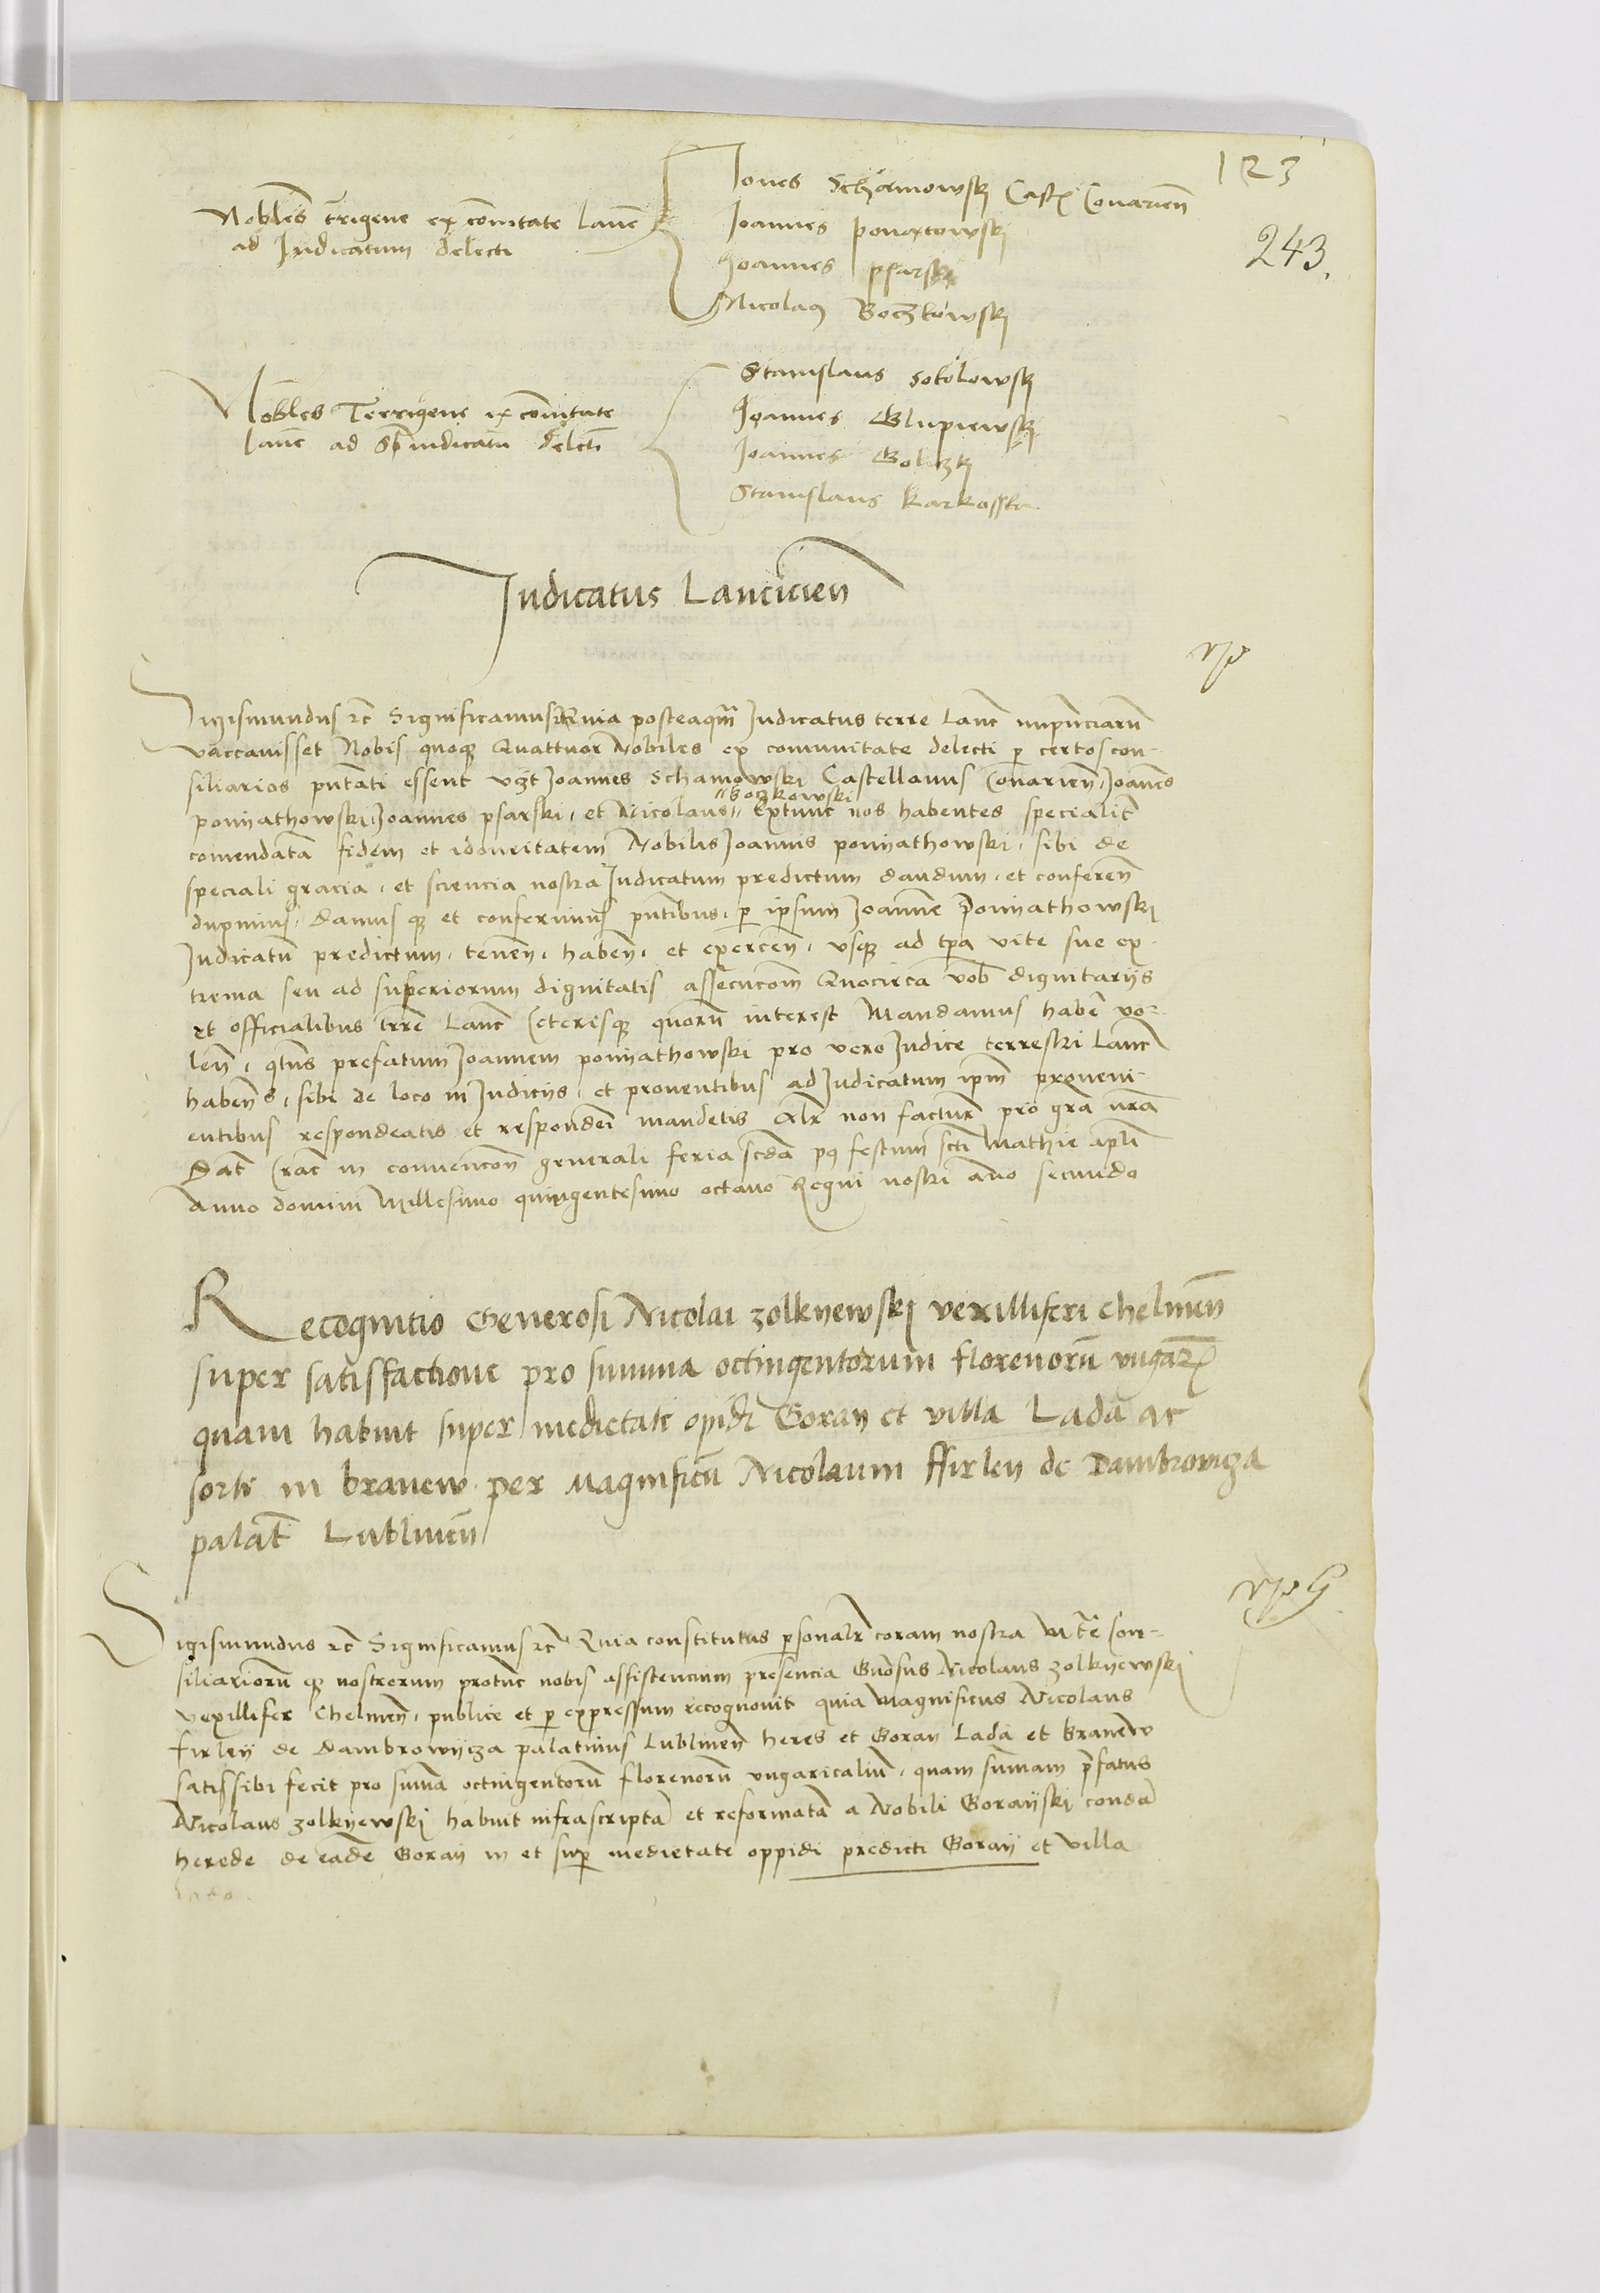 123
243.
Nobiles trigene ex comitate lanc̄
ad Iudicatum delecti
Iones Scharnowskj Castꝝ Conarien̄
Ioannes ponyatowskj
Ioannes psarskj
Nicolaꝯ Boczkowskj
Nobiles Terrigene ex comitate
lanc̄ ad Sbiudicatū delecti
Stanislaus sokolowskj
Joannes Glupiewskj
Joannes Golczkj
Stanislaus karkosska
Iudicatus Lancicien̄
rp
Sigismundus rc̄ Significamus rc̄ Quia posteaqm̄ Iudicatus terre Lanc̄ nup̄
vaccauisset Nobis quoqꝫ Quattuor Nobiles ex comunitate delecti ꝑ certos con-
siliarios pn̄tati essent vꝫt Joannes Scharnowski Castellanus Conarien̄, Ioanēs
ponyathowski, Joannes psarski, et Nicolaus "Boczkowski" Extunc nos habentes specialit̄
comendatā fidem et idoneitatem Nobilis Joannis ponyathowski, sibi de
speciali gracia, et sciencia nostra Judicatum predictum dandum, et conferen̄
duximus, damus qꝫ et conferimus pn̄tibus, ꝑ ipsum Joannē Ponyathowskj
Judicatū predictum, tenen̄, haben̄, et exercen̄, vsqꝫ ad tp̄a vite sue ex-
trema seu ad superiorum dignitatis assecucōm Quocirca vob̄ dignitarijs
et officialibus trr̄e Lanc̄ Ceterisqꝫ quorū interest Mandamus haber̄ vo-
len̄, qtn̄s prefatum Joannem ponyathowski pro vero Judice terrestri Lanc̄
haben̄s, sibi de loco in Judicijs, et prouentibus ad Judicatum ip̄m proueni-
entibus respondeatis et responderi mandetis Alr̄ non facturi pro grā nr̄a
Dat̄ Crac̄ in conuencōn generali feria scd̄a pꝰ festum scti Mathie apl̄i
Anno domini Millesimo quingentesimo octauo Regni nostri āno secundo
Recognitio Generosi Nicolai zolkyewskj vexilliferi Chelmen̄
super satisfactione pro summa octingentorum florenorū vngarꝝ
quam habuit super medietate opidi Goray et villa Lada ac
sorte in branew per Magnificū Nicolaum ffirley de Dambrowicza
palat̄ Lublinen̄
rp G
Sigismundus rc̄ Significamus rc̄ Quia constitutus ꝑsonalr̄ coram nostra M̄te Con-
siliariorū qꝫ nostrorum protūc nobis assistencium presencia Gn̄osus Nicolaus zolkyewskj
vexillifer Chelmen̄, publice et ꝑ expressum recognouit quia Magnificus Nicolaus
firleÿ de dambrowÿcza palatinus Lublinen̄ heres et Goray Lada et branew
satis sibi fecit pro sum̄a octingentorū florenorū vngaricaliū, quam sum̄am p̄fatus
Nicolaus zolkyewskj habuit infrascriptā et reformatā a Nobili Goraÿskj condā
herede de eadē Goraÿ in et suꝑ medietate oppidi predicti Goraÿ et villa
lada